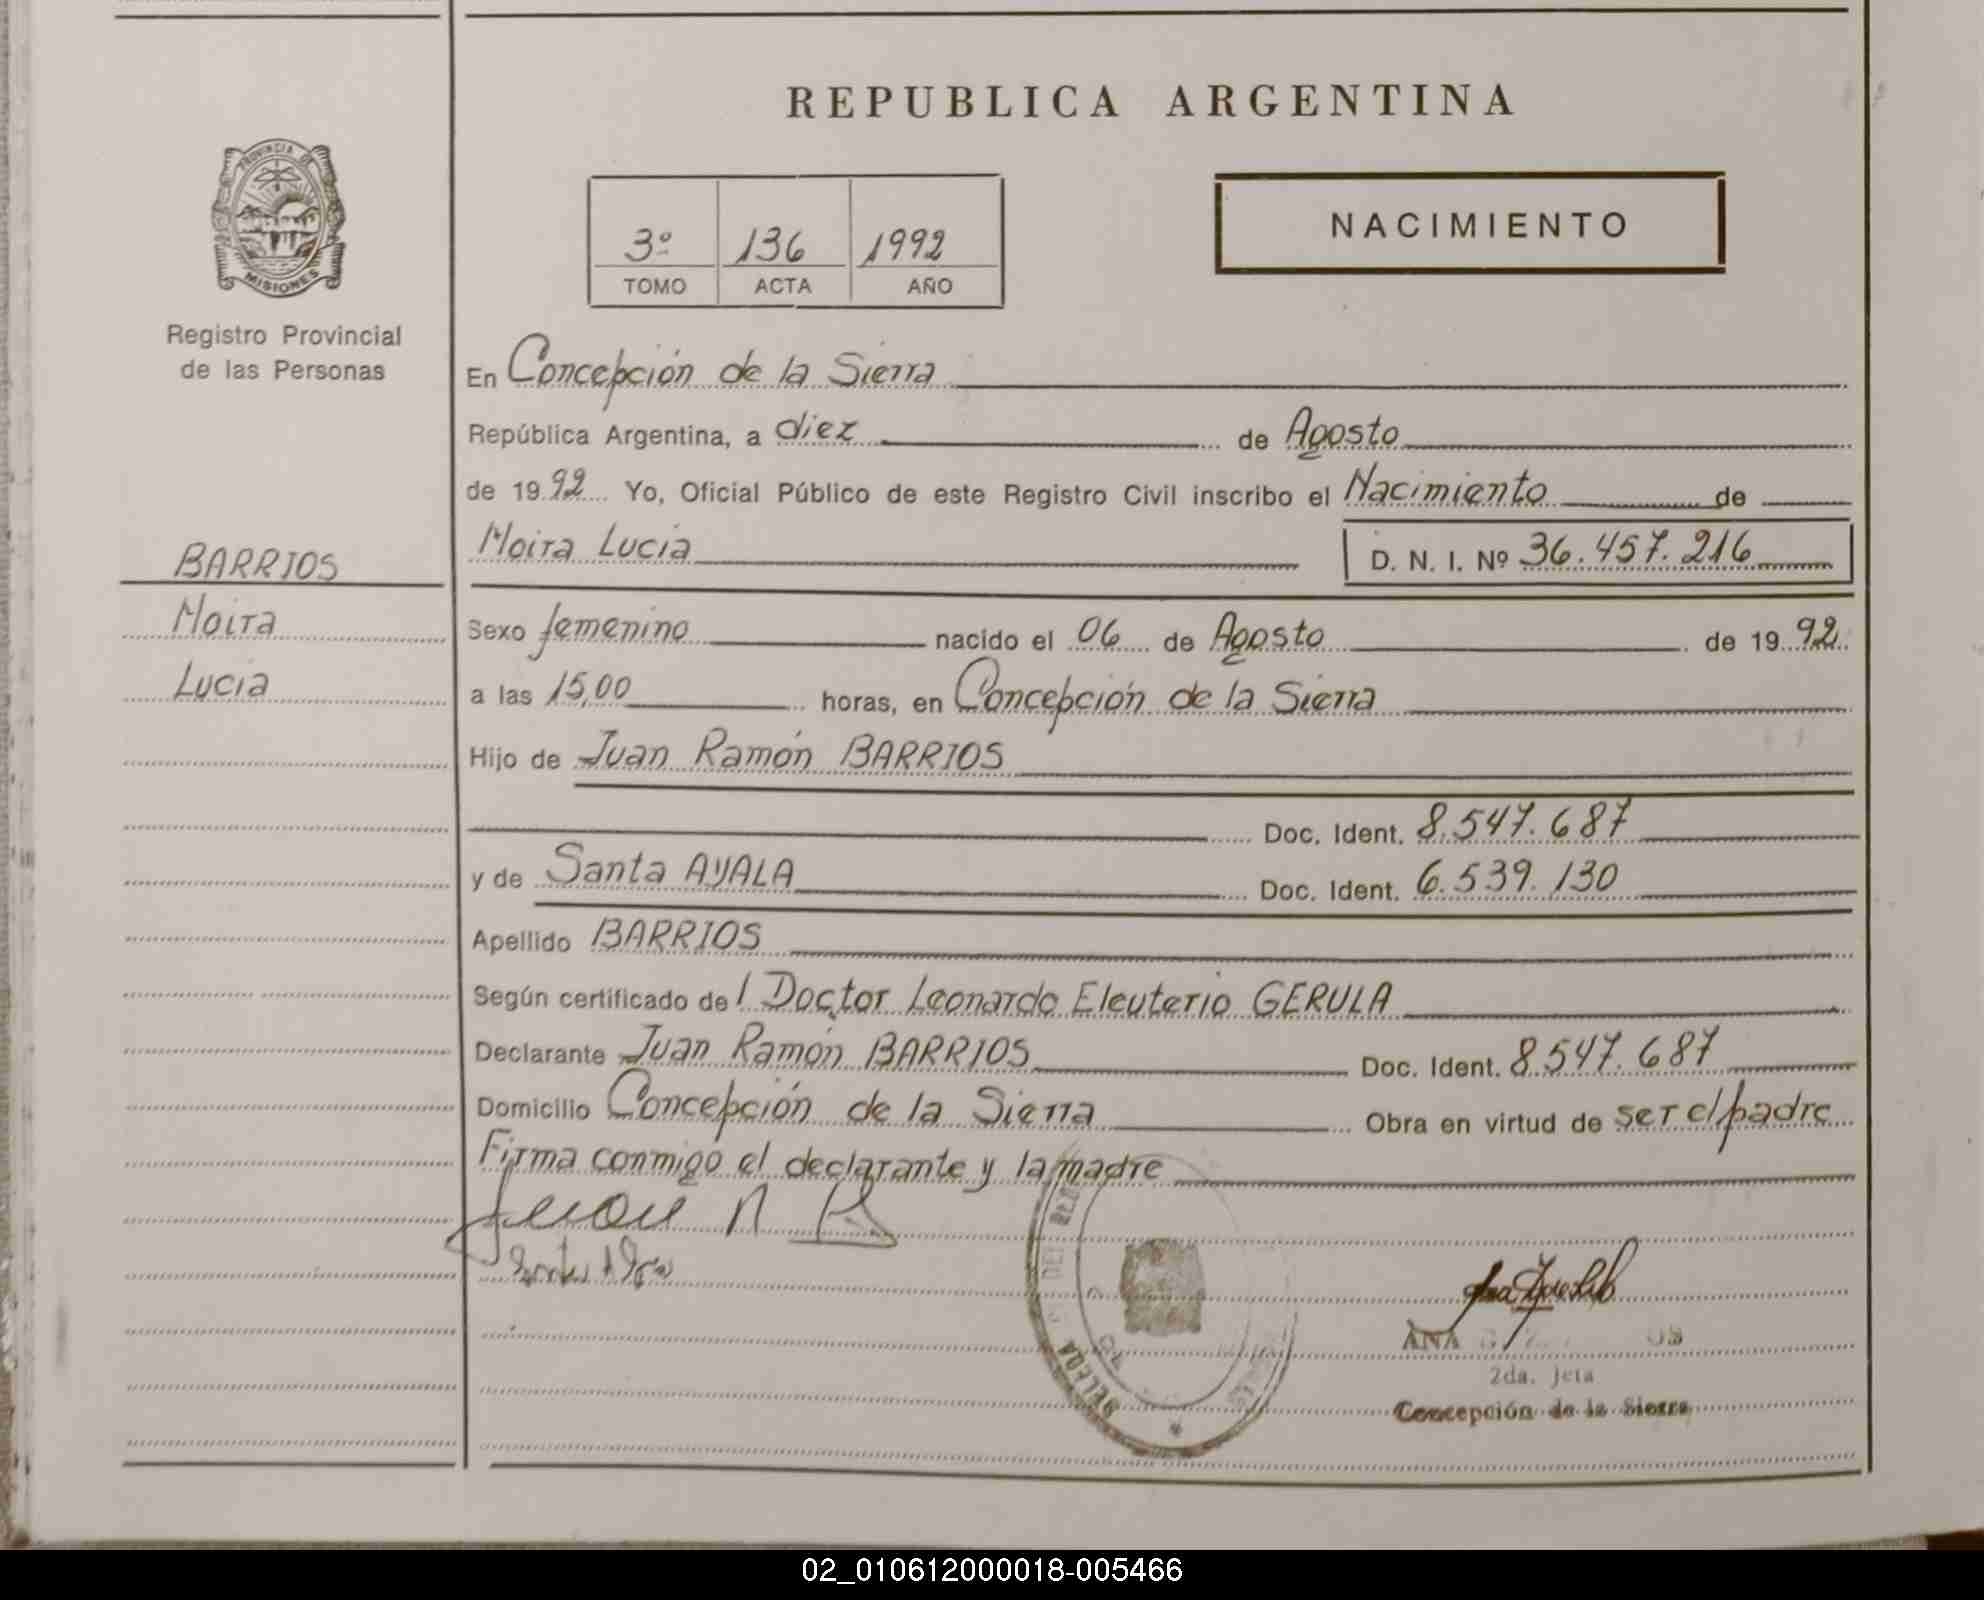 REPUBLICA ARGENTINA
PROVINCIA DE
MISIONES
Registro Provincial
de las Personas
NACIMIENTO
3º 136 1992
TOMO ACTA AÑO
En Concepción de la Sierra
República Argentina, a diez de Agosto
de 1992 Yo, Oficial Público de este Registro Civil inscribo el Nacimiento de
Moira Lucia D. N. I. Nº 36.457.216
BARRIOS
Moira
Lucia
Sexo femenino nacido el 06 de Agosto de 1992
a las 15,00 horas, en Concepción de la Sierra
Hijo de Juan Ramón BARRIOS
Doc. Ident. 8.547.687
y de Santa AYALA Doc. Ident. 6.539.130
Apellido BARRIOS
Según certificado del Doctor Leonardo Eleuterio GERULA
Declarante Juan Ramón BARRIOS Doc. Ident. 8.547.687
Domicilio Concepción de la Sierra Obra en virtud de ser el padre
Firma conmigo el declarante y la madre
Juan R B
ANA
2da. Jefa
Concepción de la Sierra
02_010612000018-005466